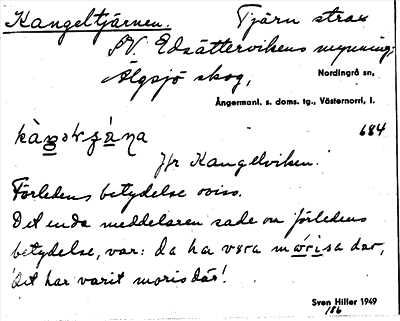 Kangeltjärnen. Tjärn strax
SV. Edsättervikens mynning;
Älgsjö skog, Nordingrå sn,
Ångermanl. s. doms. tg., Västernorrl. l.
684
Jfr Kangelviken.
Förledens betydelse oviss.
Det enda meddelaren sade om förledens
betydelse, var: da ha vara
'det har varit moris där'!
Sven Hiller 1949
186